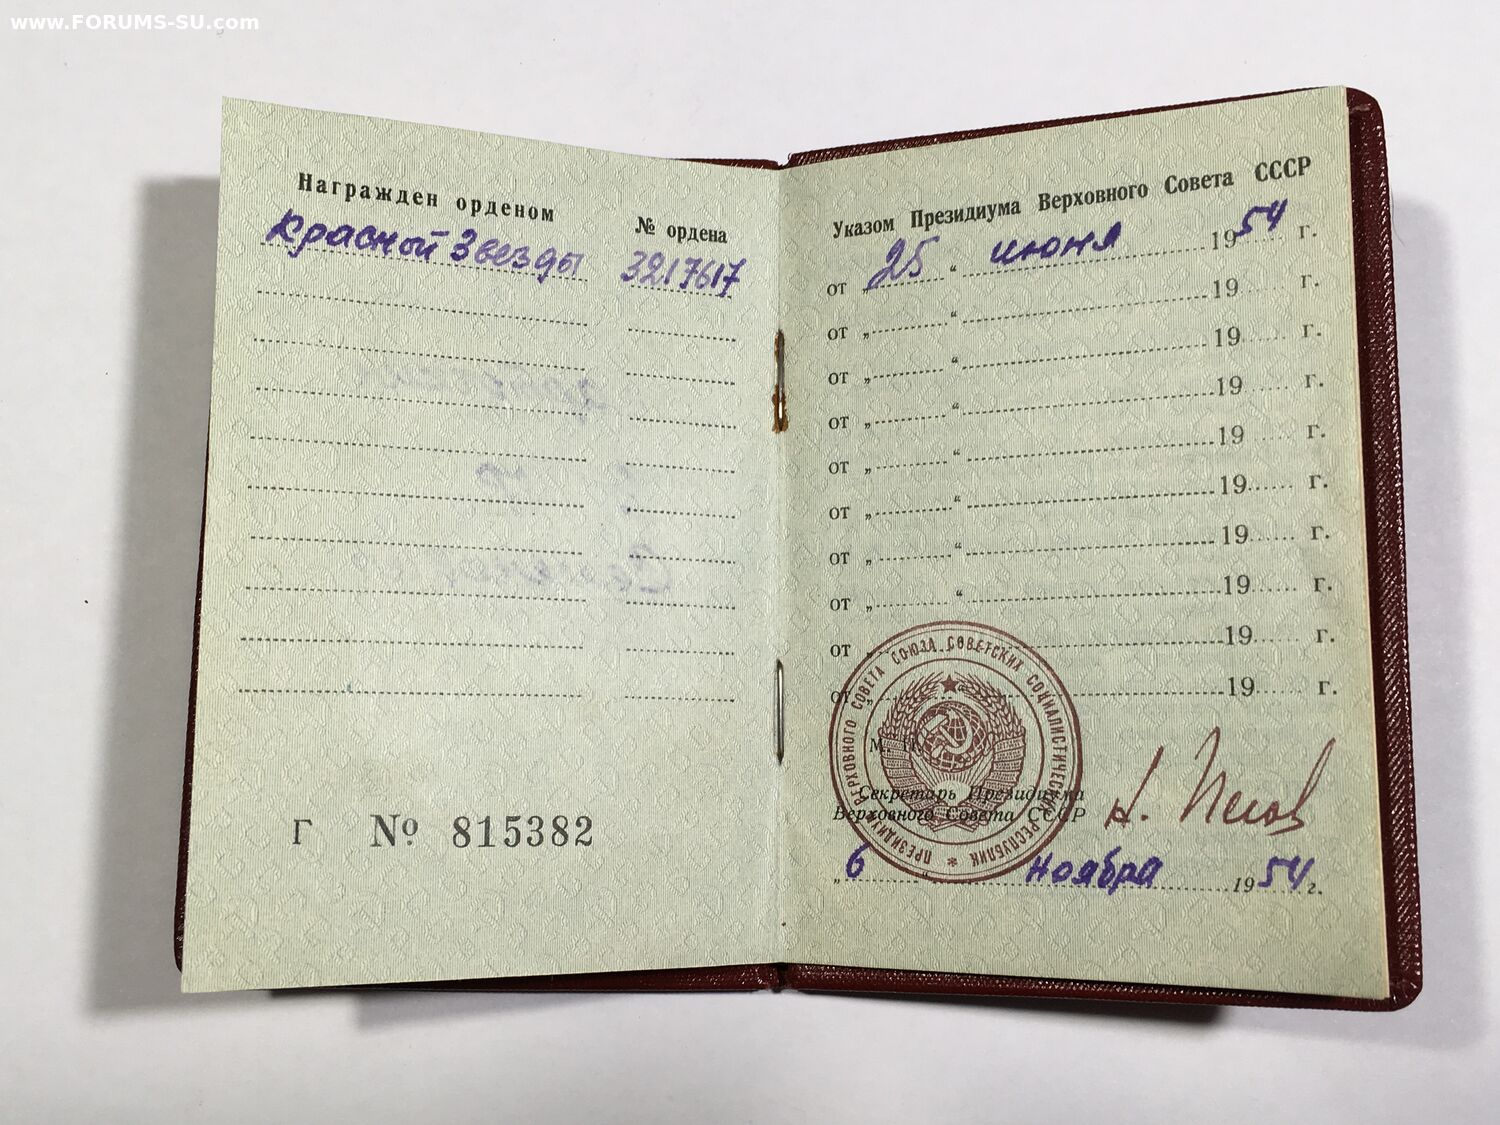 www.FORUMS-SU.com
Награжден орденом
№ ордена
Красный Звезды
3217617
Г № 815382
Указом Президиума Верховного Совета СССР
от „ 25 “ июня 1954 г.
от „ “ 19 г.
от „ “ 19 г.
от „ “ 19 г.
от „ “ 19 г.
от „ “ 19 г.
от „ “ 19 г.
от „ “ 19 г.
от „ “ 19 г.
от „ “ 19 г.
ПРЕЗИДИУМ ВЕРХОВНОГО СОВЕТА СОЮЗА СОВЕТСКИХ СОЦИАЛИСТИЧЕСКИХ РЕСПУБЛИК
М. П.
Секретарь Президиума
Верховного Совета СССР
Н. Пегов
„ 6 “ ноября 1954 г.